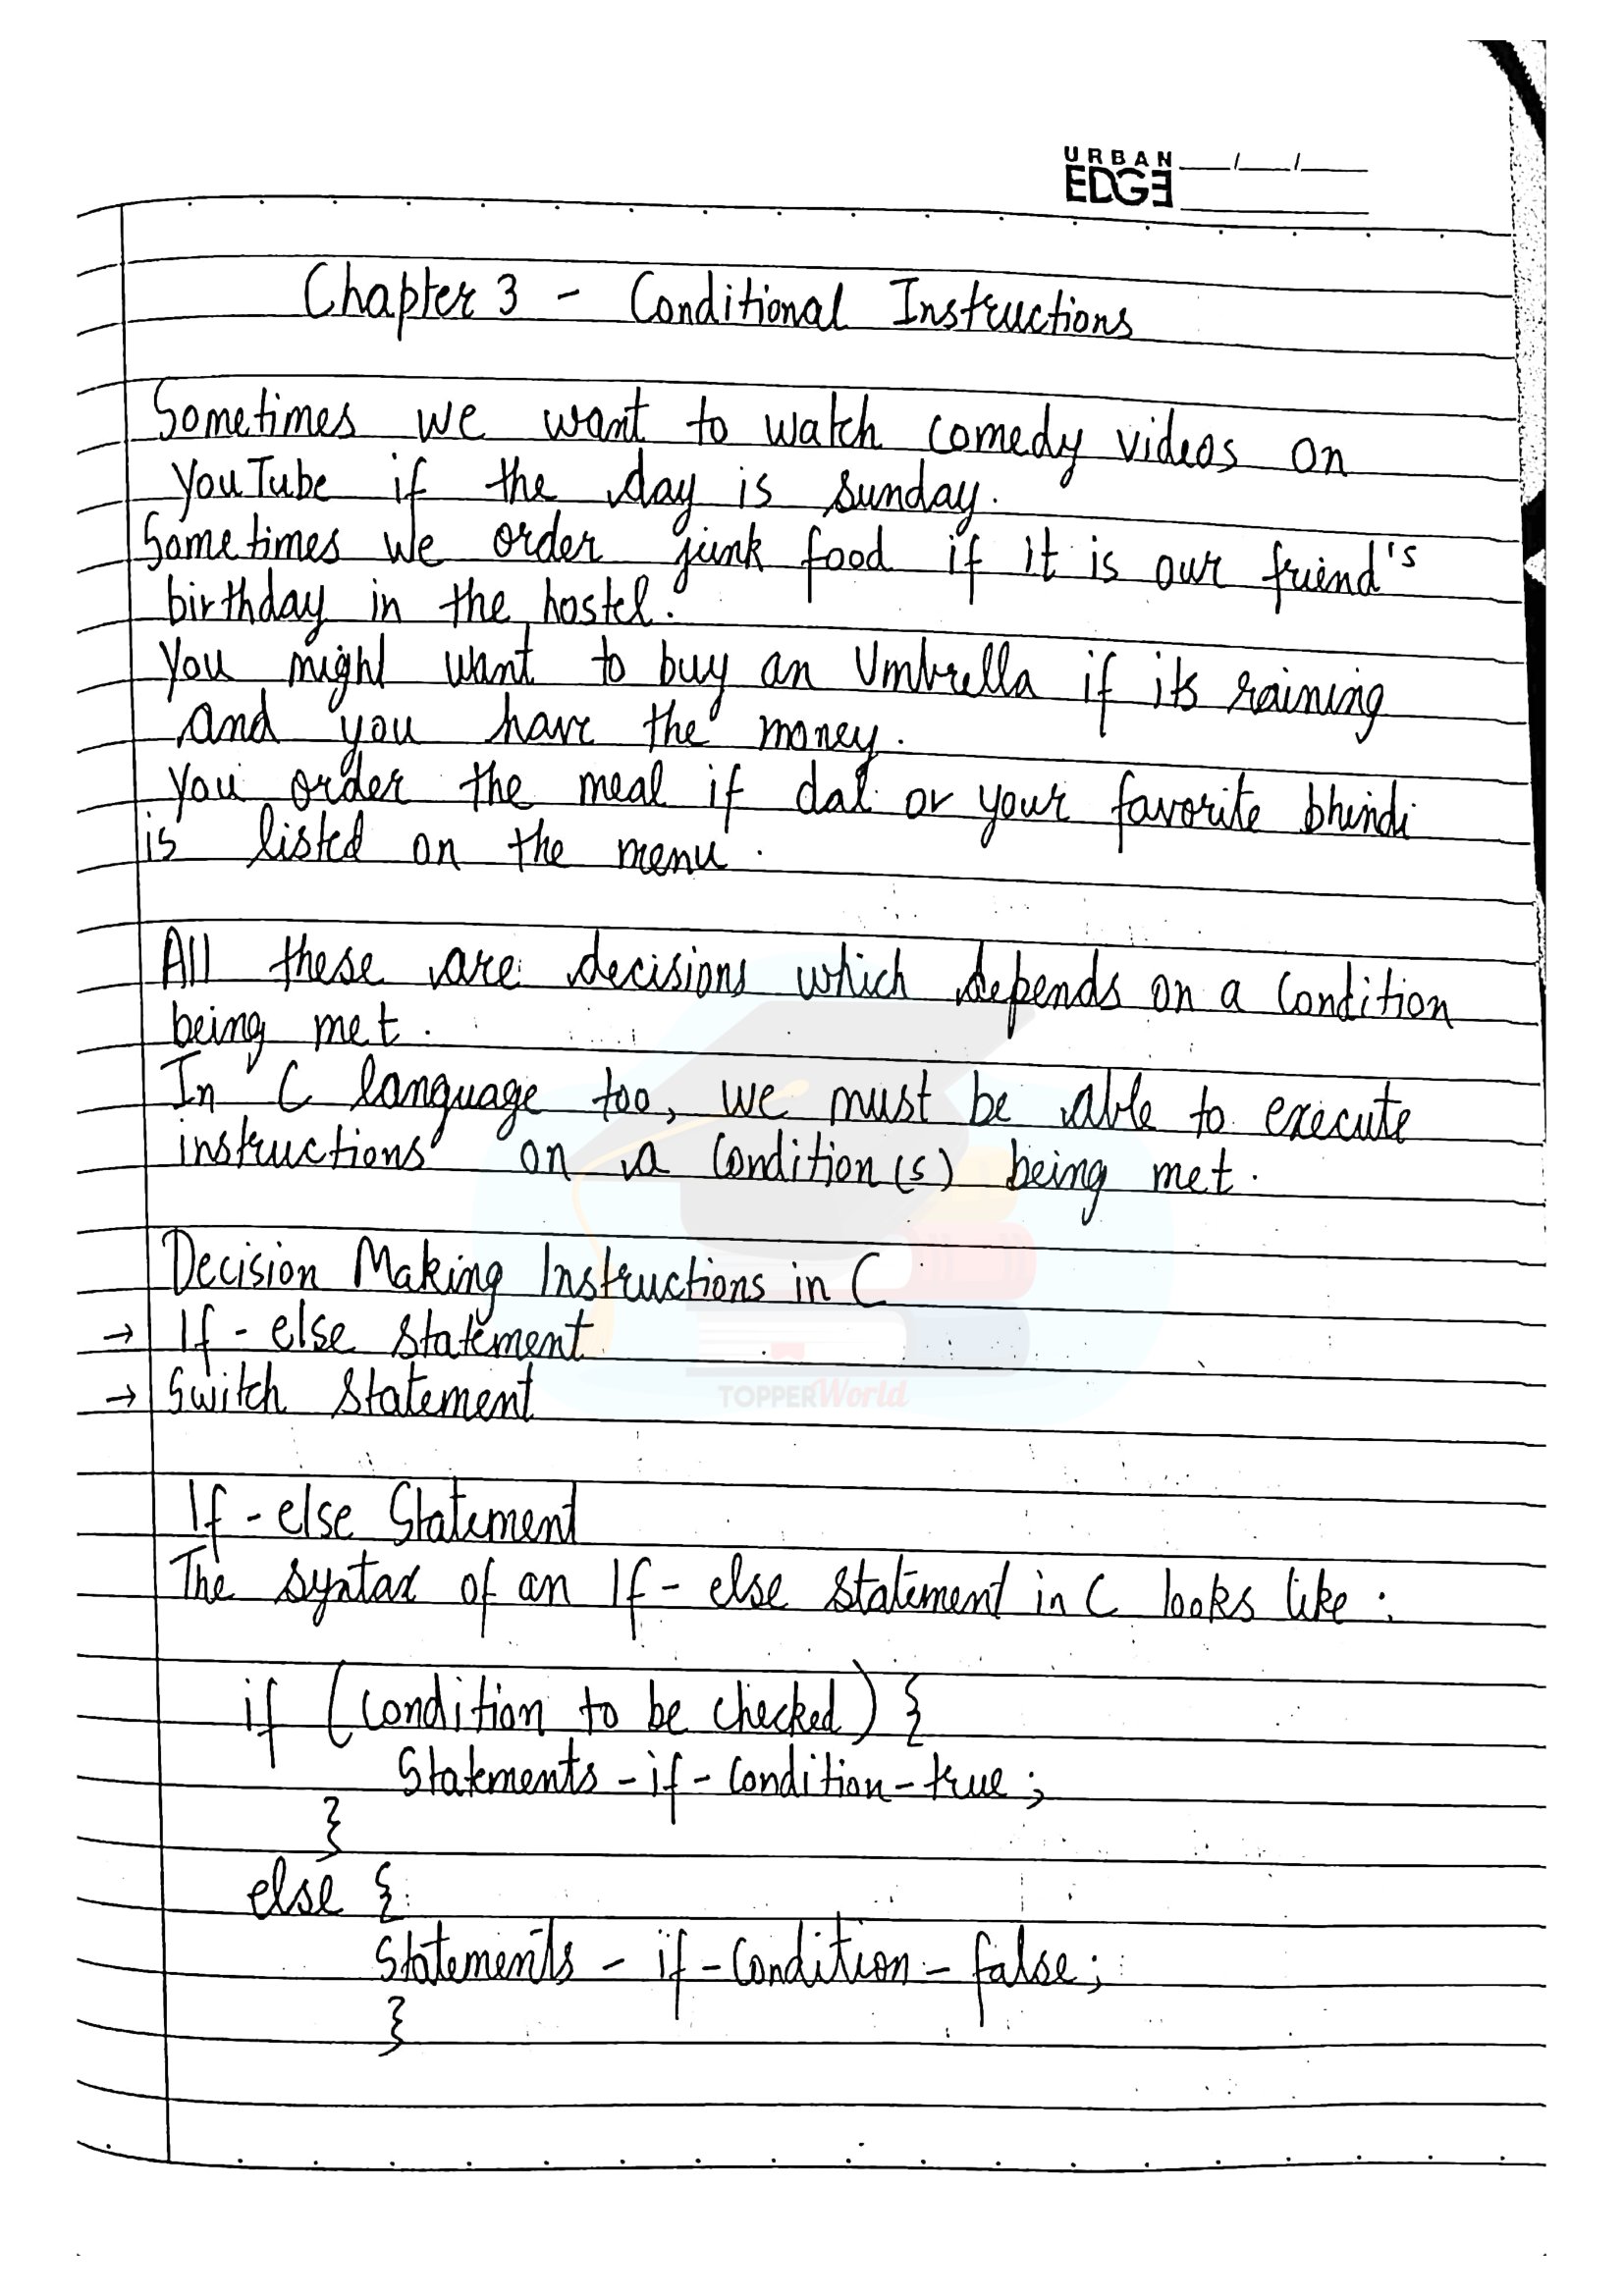 URBAN
EDGE
Chapter 3 - Conditional Instructions
Sometimes we want to watch comedy videos on
YouTube if the day is sunday.
Sometimes we order junk food if it is our friend's
birthday in the hostel.
You might want to buy an Umbrella if its raining
and you have the money.
You order the meal if dal or your favorite bhindi
is listed on the menu.
All these are decisions which depends on a condition
being met.
In C language too, we must be able to execute
instructions on a condition(s) being met.
Decision Making Instructions in C
→ If-else statement
→ Switch statement
TOPPERWorld
If-else Statement
The syntax of an If-else statement in C looks like:
if (condition to be checked) {
Statements-if-condition-true;
}
else {
Statements-if-condition-false;
}